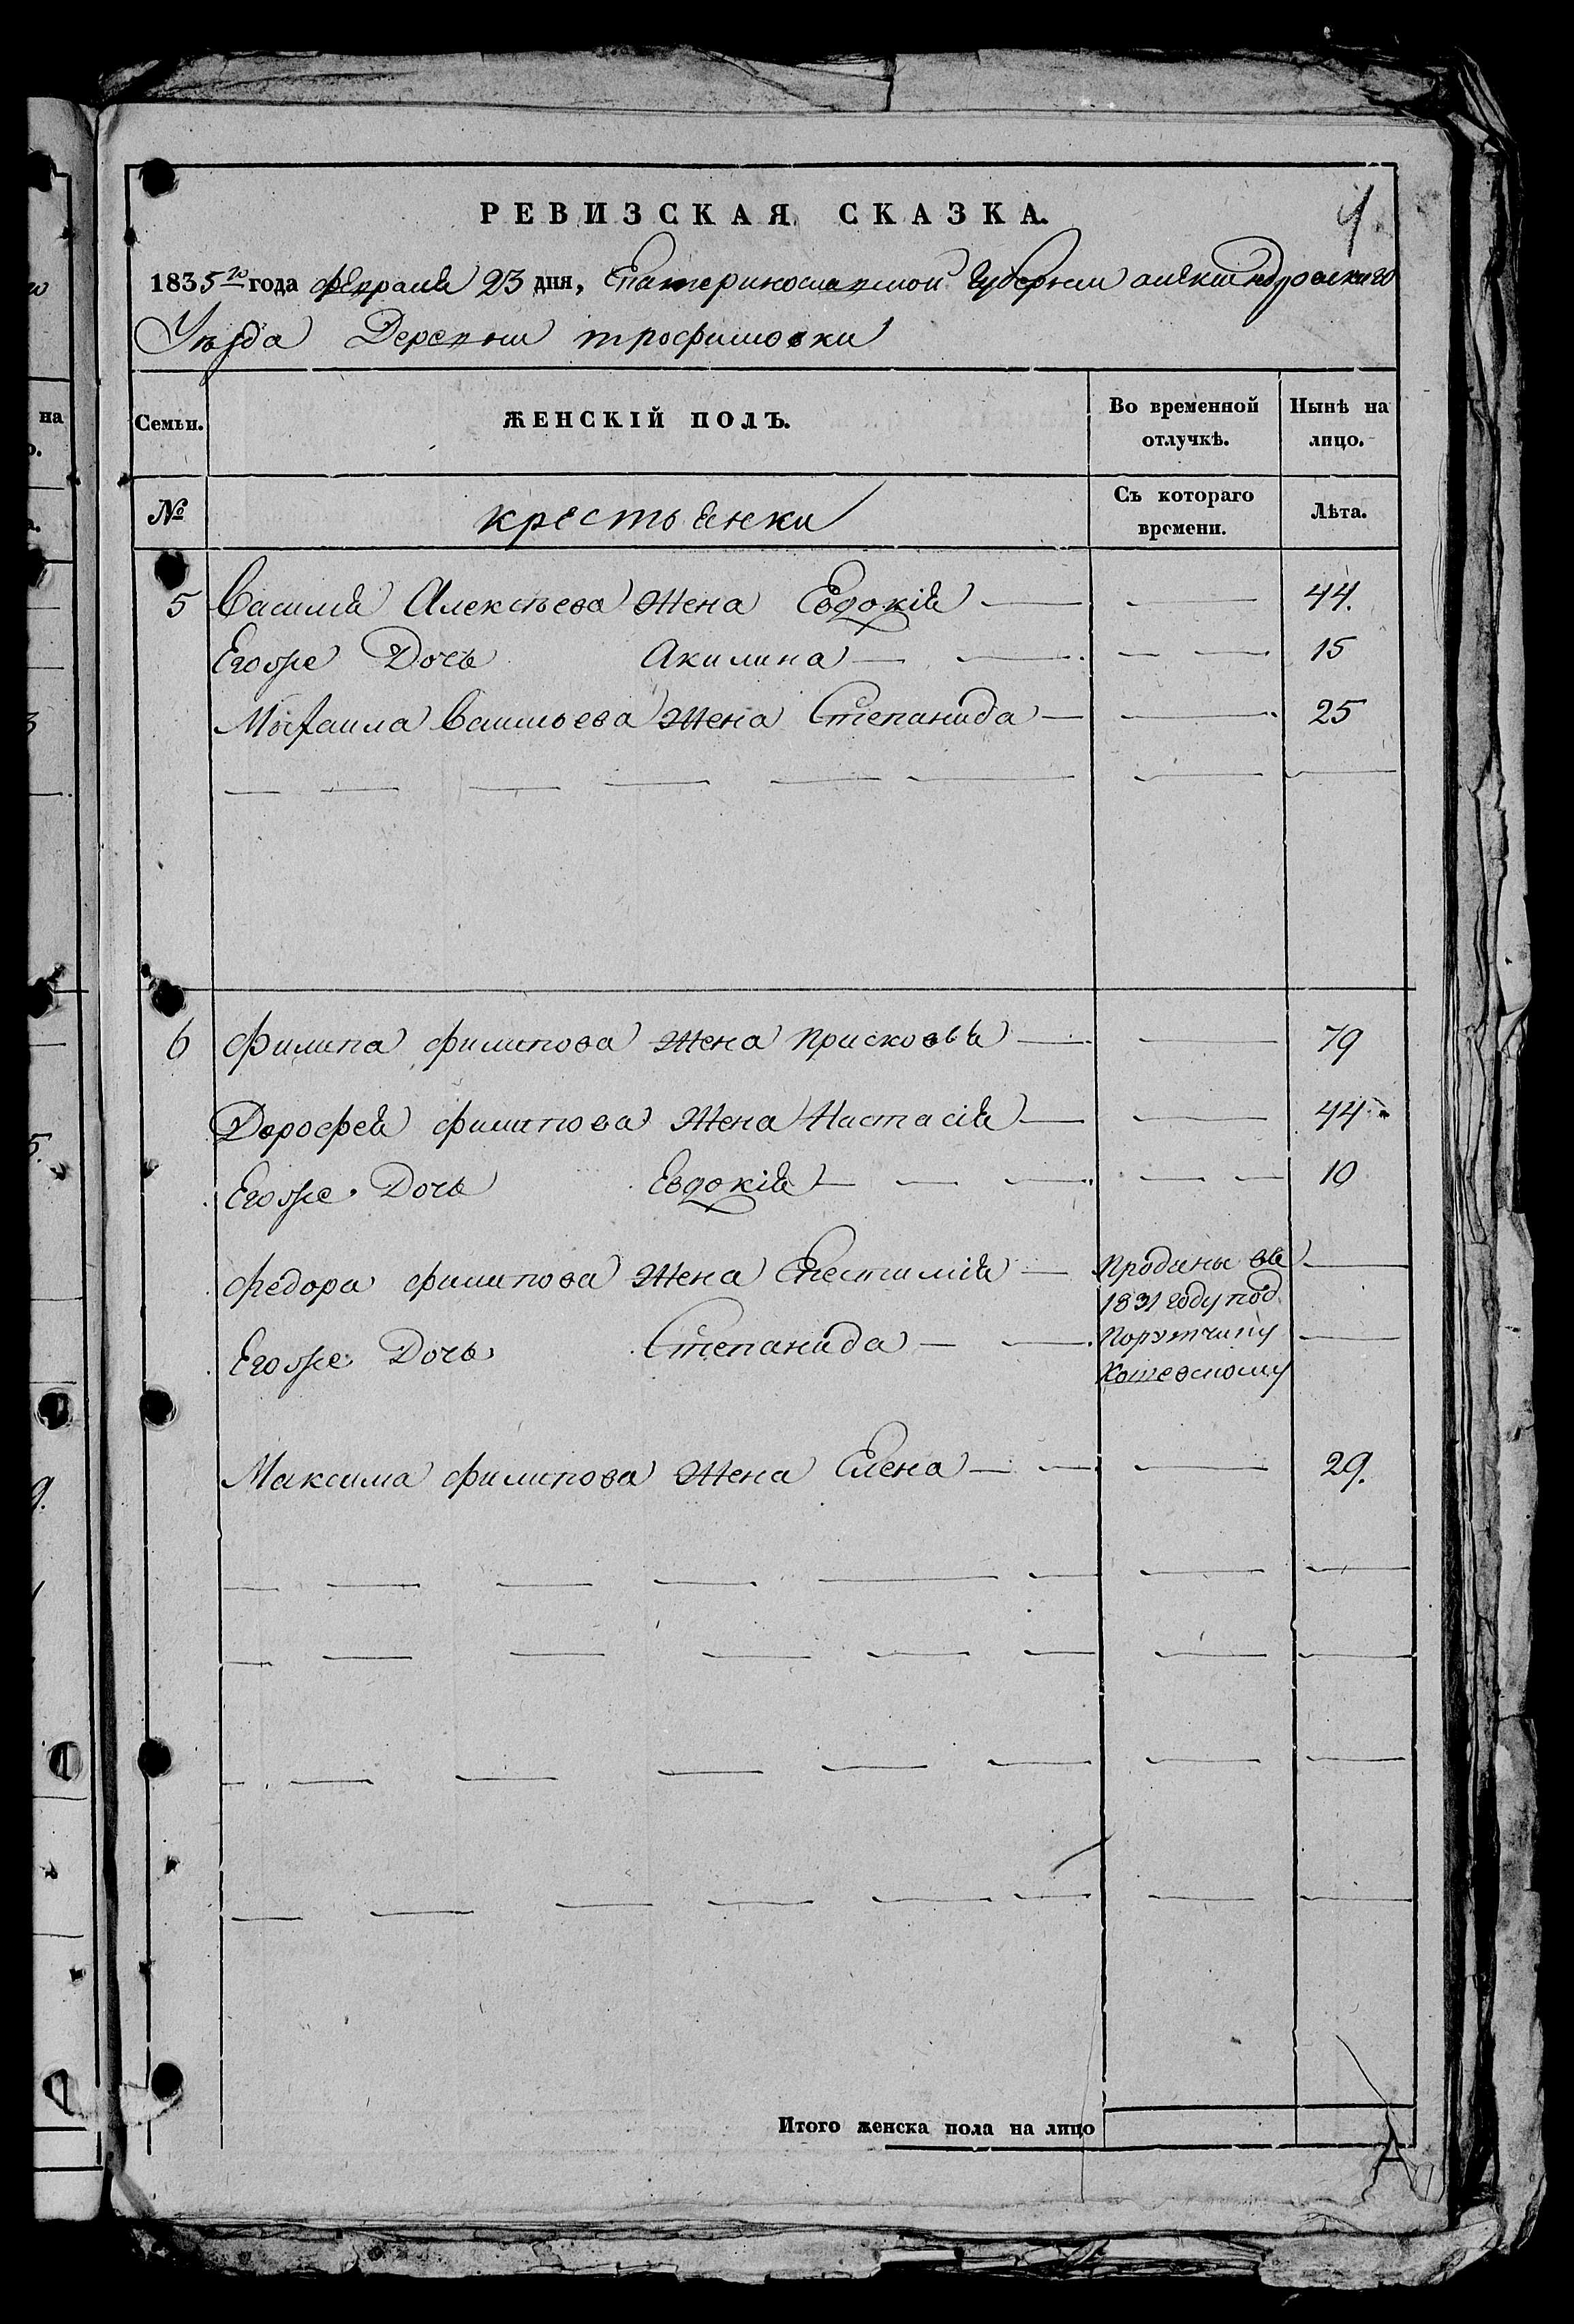 4
РЕВИЗСКАЯ СКАЗКА.
1835го года февраля 23 дня, Екатеринославской Губернии александровскаго
Уѣзда Деревни трофимовки
Семьи. ЖЕНСКІЙ ПОЛЪ. Во временной отлучкѣ. Нынѣ на лицо.
№ крестьянки Съ котораго времени. Лѣта.
5 Василия Алексѣева Жена Евдокія 44.
Егоже Дочь Акилина 15
Михаила Васильева Жена Степанида 25
6 Филипа филипова Жена прасковья 79
Дорофея филипова Жена Настасія 44
Егоже Дочь Евдокія 10
Федора филипова Жена проданы въ
1831 году под
Егоже Дочь Степанида порутчику
Максима филипова Жена Елена 29.
Итого женска пола на лицо